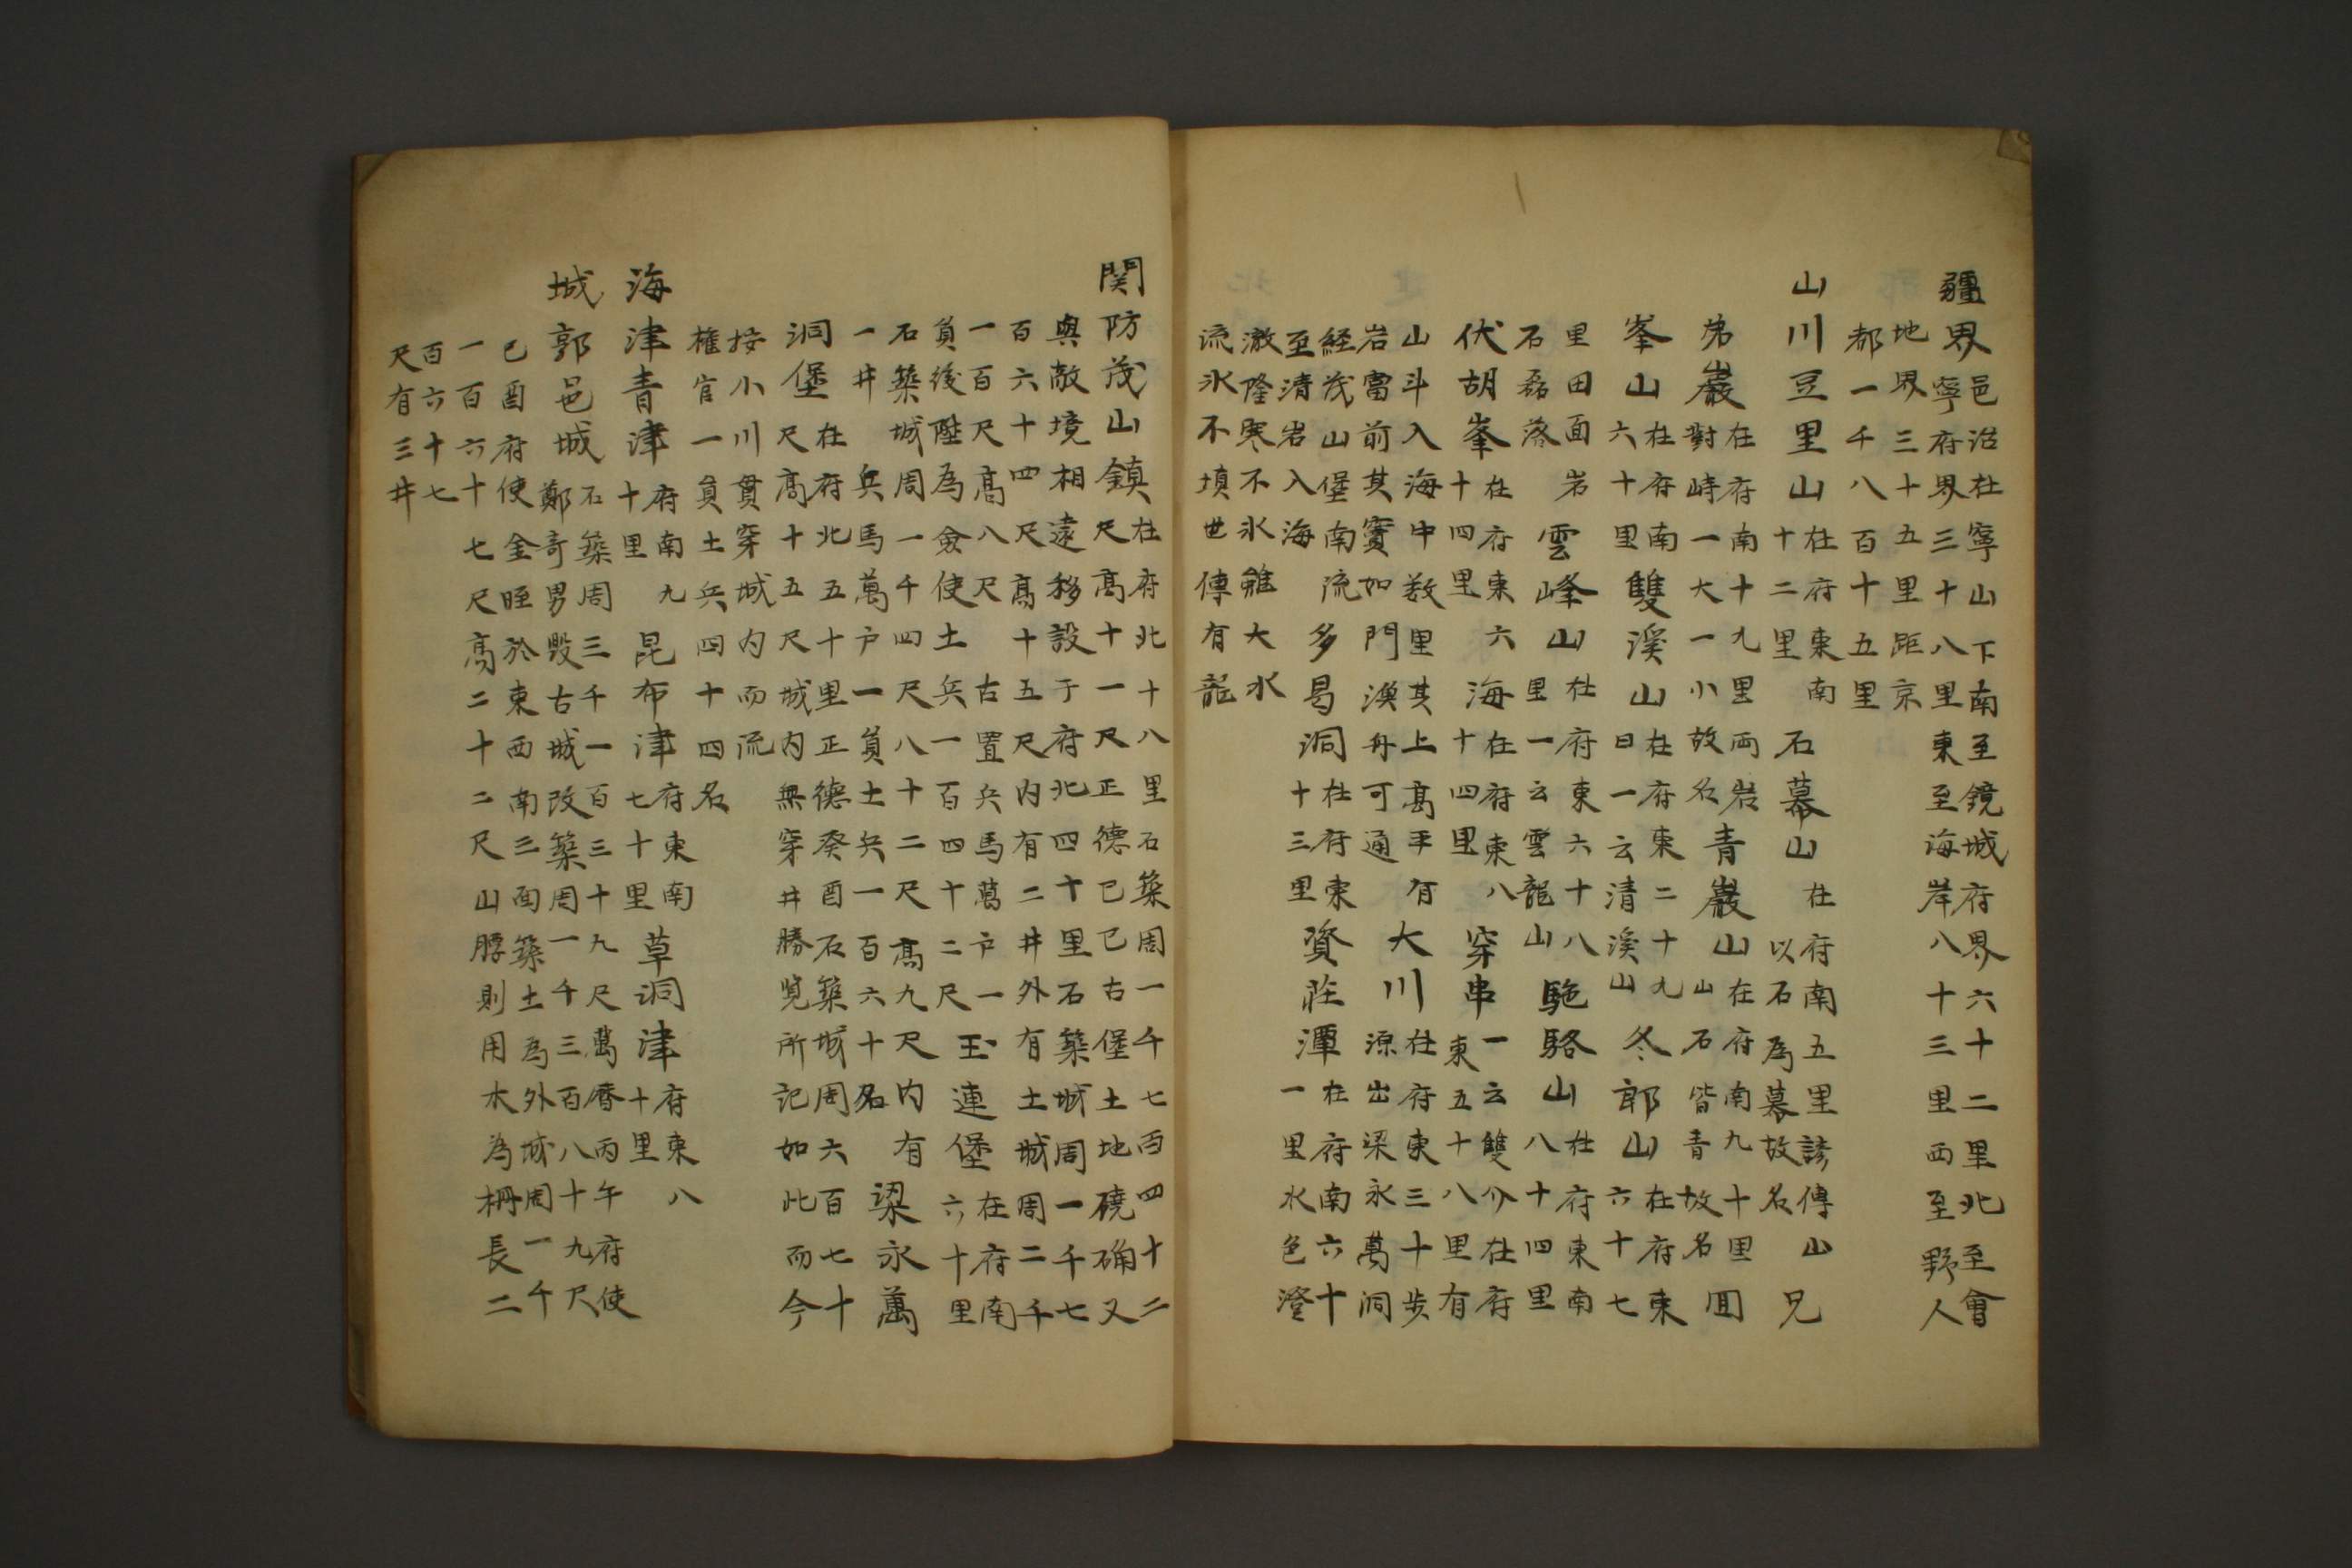 疆界邑治在寧山下南至鏡城府界六十二里北至會
寧府界三十八里東至海岸八十三里西至野人
地界三十五里距京
都一千八百十五里
山川豆里山在府東南
十二里石幕山在府南五里諺傳山
以石爲幕故名兄
弟巖在府南十九里兩岩
對峙一大一小故名青巖山在府南九十里
山石皆青故名圓
峯山在府南
六十里雙溪山在府東二十九
曰一云清溪山冬郎山在府東
六十七
里田面岩
石磊落雲峰山在府東六十八
里一云雲龍山駞駱山在府東南
八十四里
伏胡峯在府東六
十四里海在府東八
十四里穿串一云雙介在府
東五十八里有
山斗入海中数里其上高平有
岩當前其實如門漁舟可通大川在府東三十步
源出梁永萬洞
経茂山堡南流
至清岩入海多曷洞在府東
十三里資莊潭在府南六十
一里水色澄
澈隆寒不氷雖大水
流氷不填世傳有龍
関防茂山鎮在府北十八里石築周一千七百四十二
尺高十一尺正德已巳古堡土地磽确又
與敵境相遠移設于府北四十里石築城周一千七
百六十四尺高十五尺内有二井外有土城周二千
一百尺高八尺古置兵馬萬户一
員後陞為僉使土兵一百四十二尺玉連堡在府南
六十里
石築城周一千四百八十二尺高九尺内有
一井兵馬萬户一員士兵一百六十名梁永萬
洞堡在府北五十里正德癸酉石築城周六百七十
尺高十五尺城内無穿井勝覧所記如此而今
按小川貫穿城内而流
權官一員土兵四十四名
海津青津府南九
十里昆布津府東南
七十里草洞津府東八
十里
城郭邑城石築周三千一百三十九尺萬曆丙午府使
鄭奇男毁古城改築周一千三百八十九尺
已酉府使金晊於東西南三面築土為外城周一千
一百六十七尺高二十二尺山腰則用木為柵長二
百六十七
尺有三井